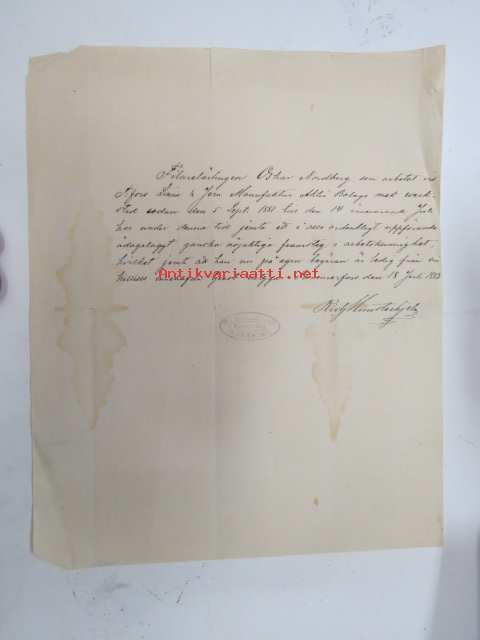 Filarelärlingen Oskar Nordberg som arbetat vid
T:fors Linne & Jern Manufaktur Aktie Bolags mek. werk-
stad sedan den 5 Sept. 1881 till den 14 innevarande Juli
har under denna tid jemte ett i allo ordentligt uppförande
ådagalagt ganska nöjaktiga framsteg i arbetskunnighet,
hvilket jemte att han nu på egen begäran är ledig från
Tammerfors den 18 Juli 1883
Antikvariaatti.net